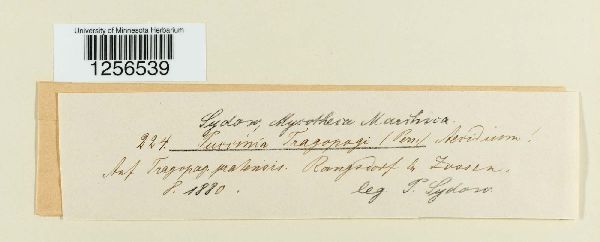 University of Minnesota Herbarium
1256539
Sydow, Mycotheca Marchica.
224. Puccinia Tragopogi (Pers.) Aecidium!
Auf Tragopog. pratensis. Rangsdorf b. Zossen.
1880.
leg. P. Sydow.